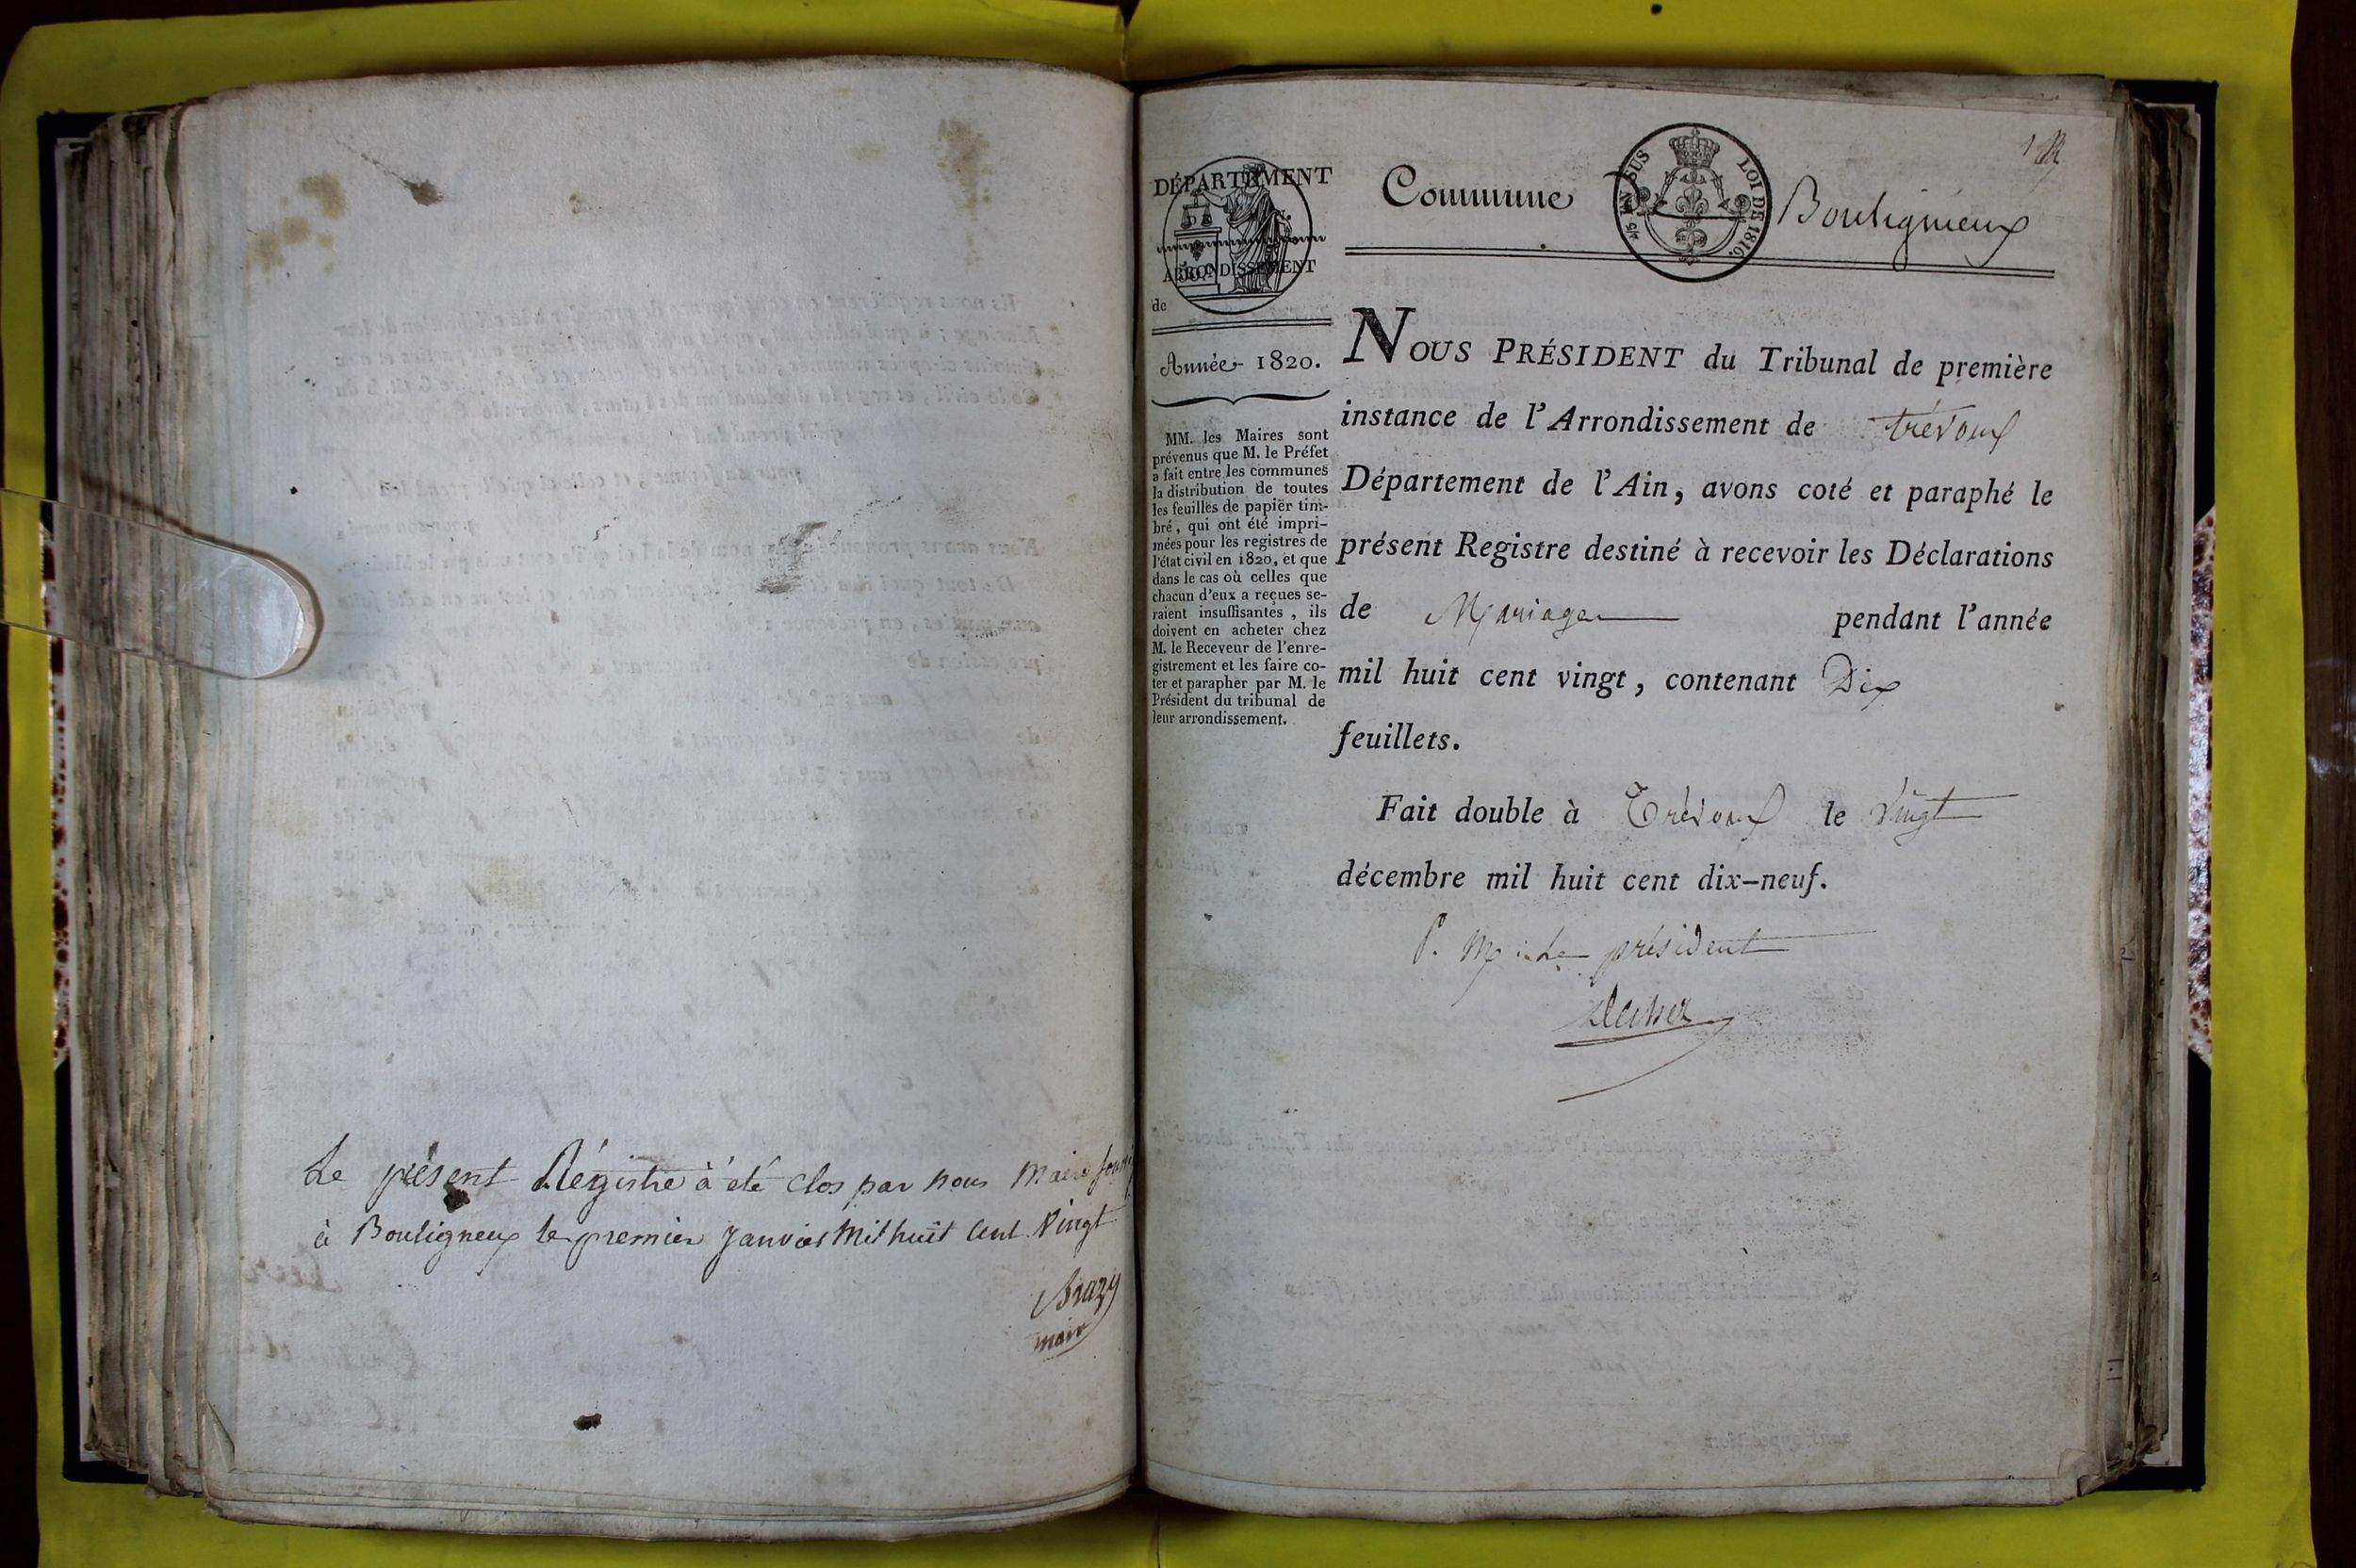 Le présent Régistre à été clos par nous Maire
à Bouligneux le premier Janvier Mil huit Cent Vingt
Brazy
maire
DÉPARTEMENT
ARRONDISSEMENT
de
Année 1820.
MM. les Maires sont
prévenus que M. le Préfet
a fait entre les communes
la distribution de toutes
les feuilles de papier tim-
bré, qui ont été impri-
mées pour les registres de
l'état civil en 1820, et que
dans le cas où celles que
chacun d'eux a reçues se-
raient insuffisantes, ils
doivent en acheter chez
M. le Receveur de l'enre-
gistrement et les faire co-
ter et parapher par M. le
Président du tribunal de
leur arrondissement.
Commune D Bouligneux
EN SUS LOI DE 1816.
NOUS PRÉSIDENT du Tribunal de première
instance de l'Arrondissement de trévoux
Département de l'Ain, avons coté et paraphé le
présent Registre destiné à recevoir les Déclarations
de Mariages pendant l'année
mil huit cent vingt, contenant Dix
feuillets.
Fait double à Trévoux le vingt
décembre mil huit cent dix-neuf.
P. président